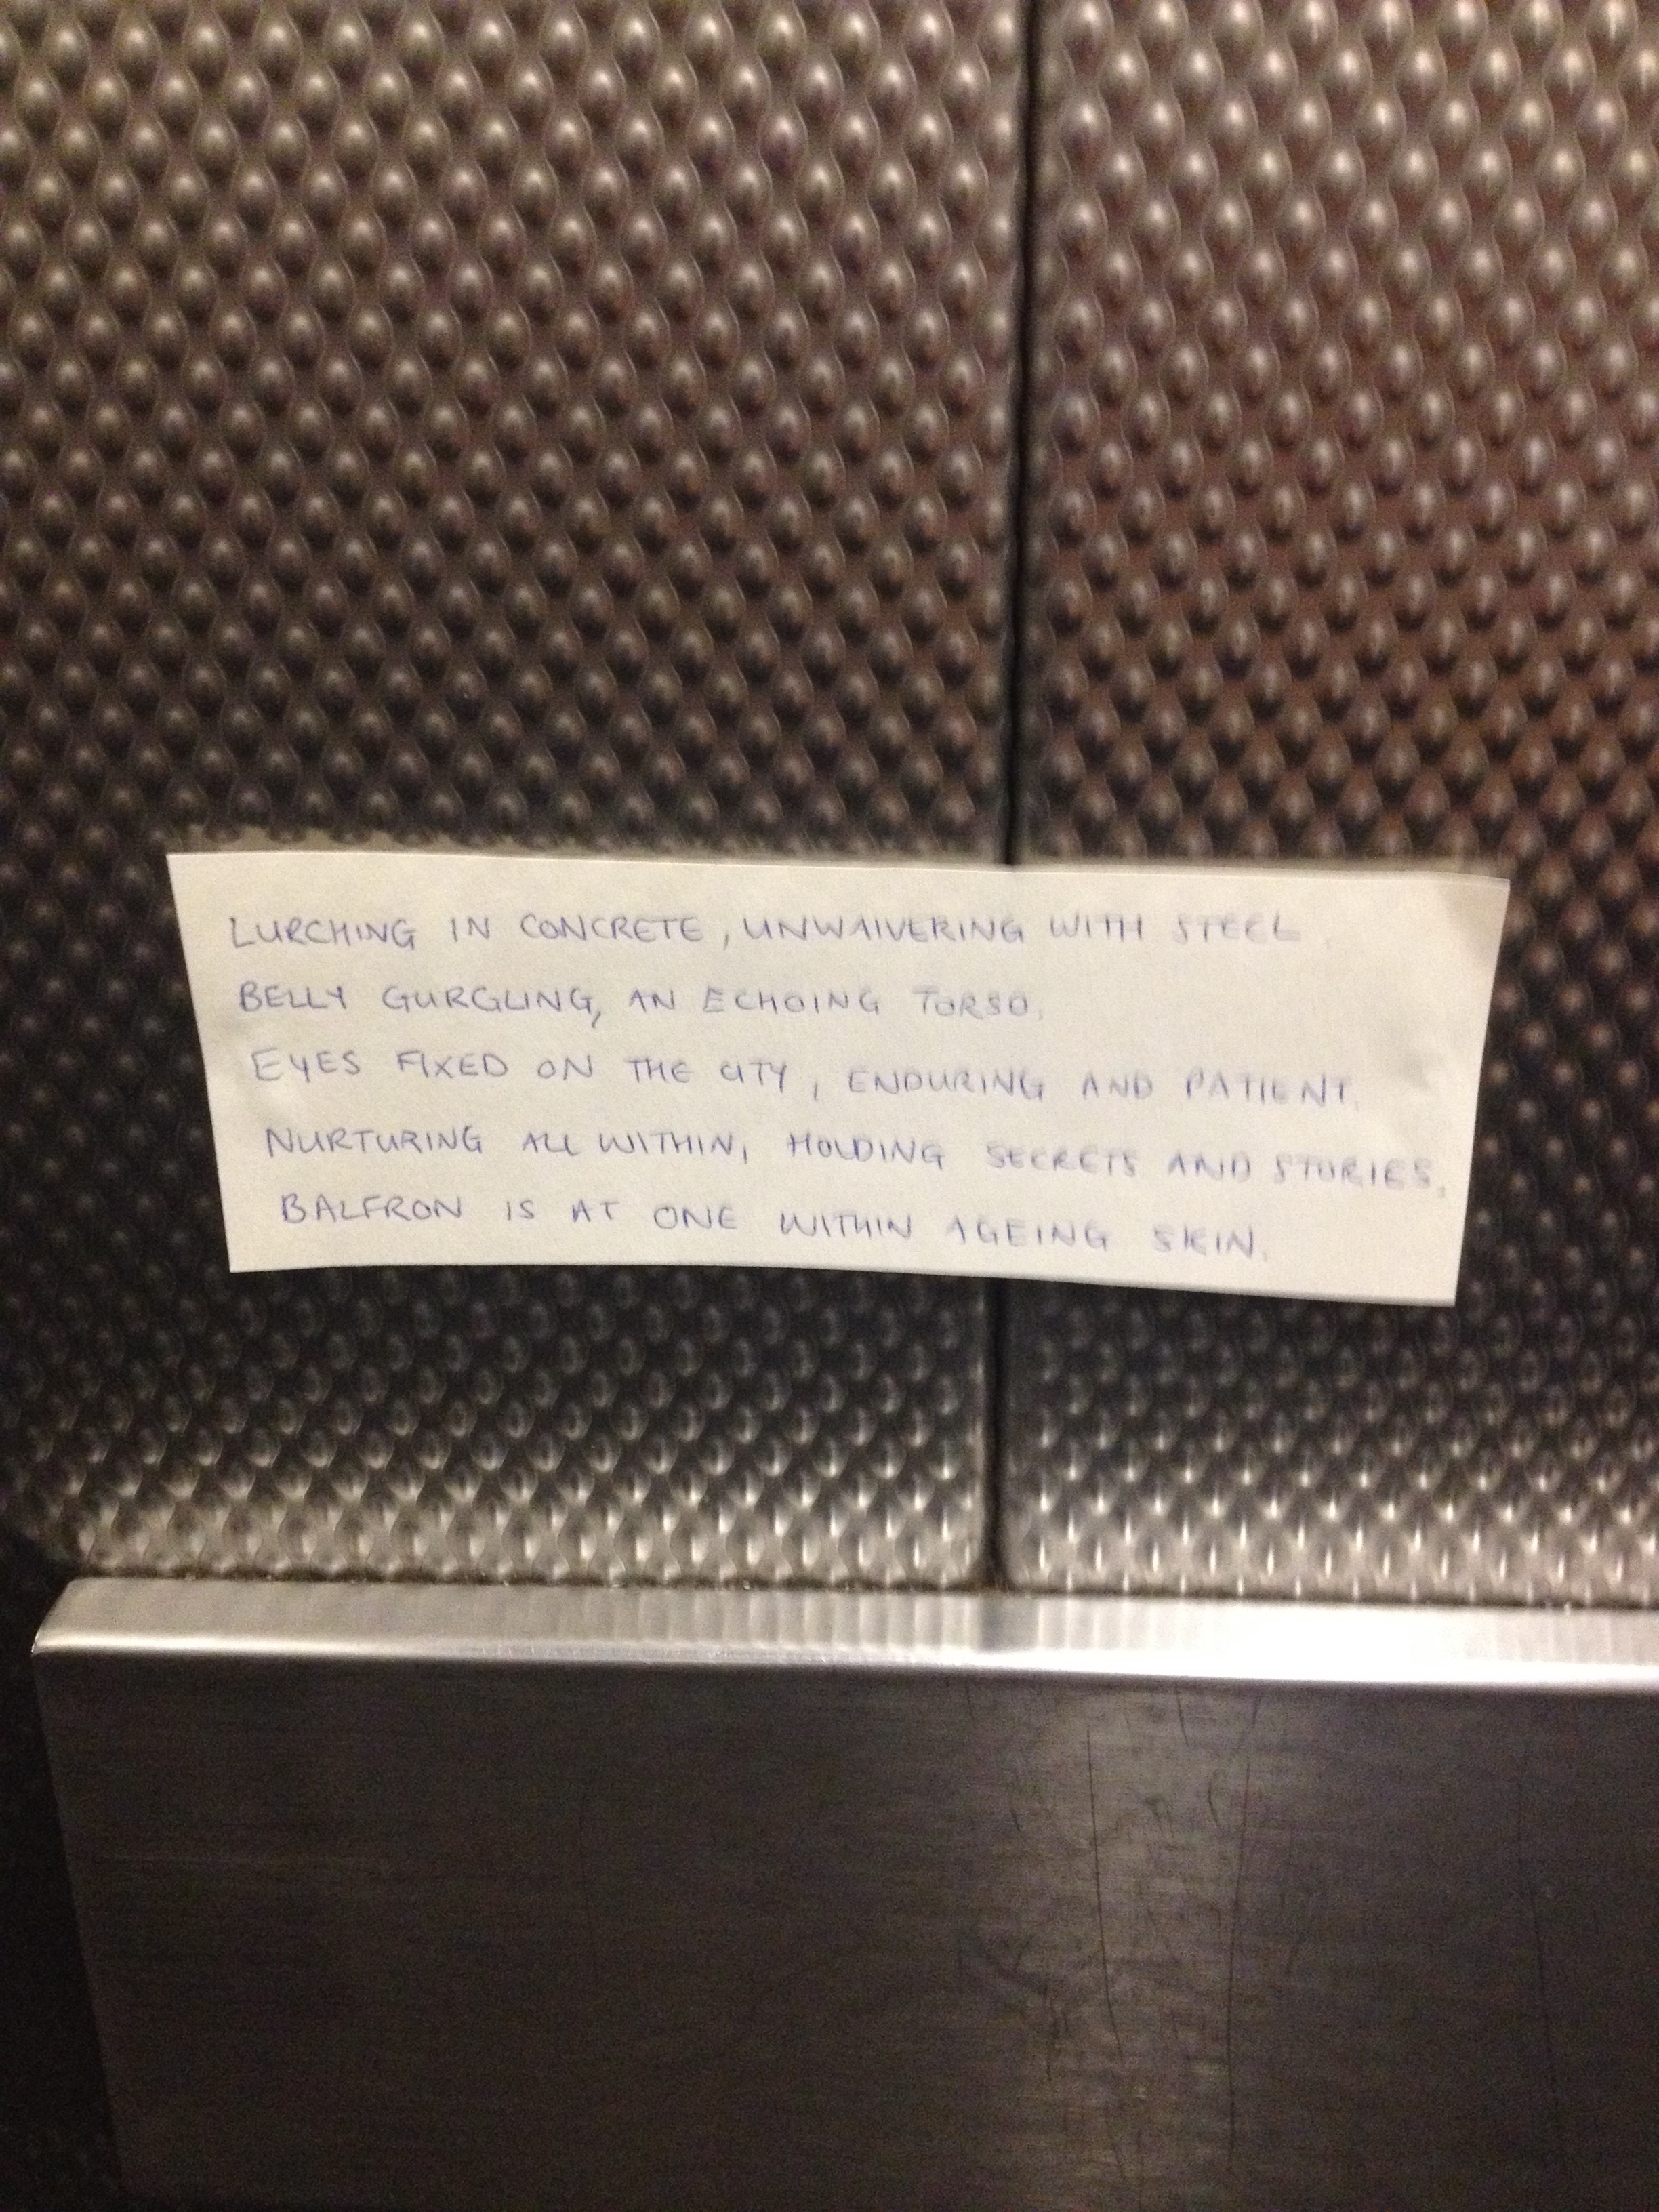 LURCHING IN CONCRETE, UNWAIVERING WITH STEEL.
BELLY GURGLING, AN ECHOING TORSO.
EYES FIXED ON THE CITY, ENDURING AND PATIENT.
NURTURING ALL WITHIN, HOLDING SECRETS AND STORIES.
BALFRON IS AT ONE WITHIN AGEING SKIN.